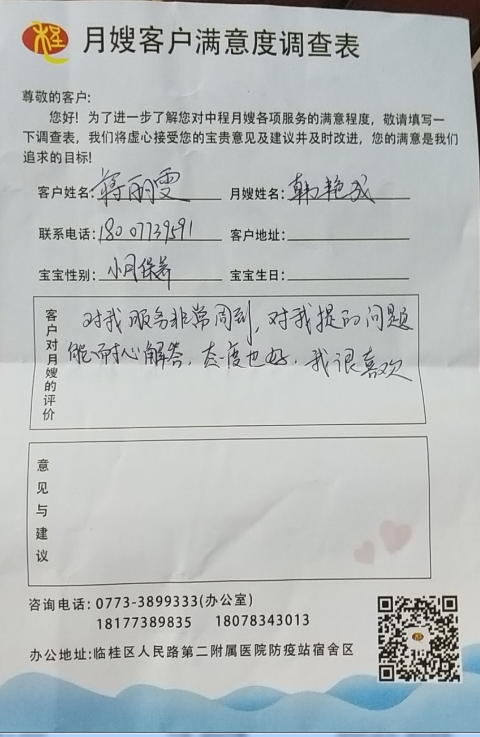 月嫂客户满意度调查表
尊敬的客户:
您好! 为了进一步了解您对中程月嫂各项服务的满意程度, 敬请填写一
下调查表, 我们将虚心接受您的宝贵意见及建议并及时改进, 您的满意是我们
追求的目标!
客户姓名: 蒋丽雯 月嫂姓名: 韩艳
联系电话: 18007739591 客户地址:
宝宝性别: 小月保养 宝宝生日:
客户对月嫂的评价
对我服务非常周到, 对我提的问题
能耐心解答, 态度也好, 我很喜欢
意见与建议
咨询电话: 0773-3899333(办公室)
18177389835 18078343013
办公地址: 临桂区人民路第二附属医院防疫站宿舍区